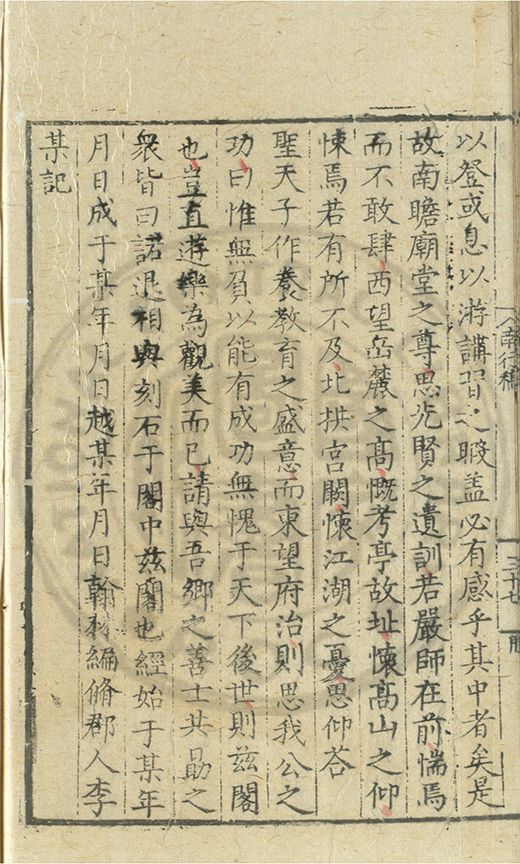 南行稿
三十七
以登或息以游講習之暇盖必有感乎其中者矣是
故南瞻廟堂之尊思先賢之遺訓若嚴師在前惴焉
而不敢肆西望岳麓之高慨考亭故址懷高山之仰
悚焉若有所不及北拱宮闕懷江湖之憂思仰荅
聖天子作養教育之盛意而東望府治則思我公之
功曰惟無負以能有成功無愧于天下後世則兹閣
也豈直遊樂為觀美而已請與吾鄉之善士共勗之
衆皆曰諾退相與刻石于閣中兹閣也經始于某年
月日成于某年月日越某年月日翰林編脩郡人李
某記